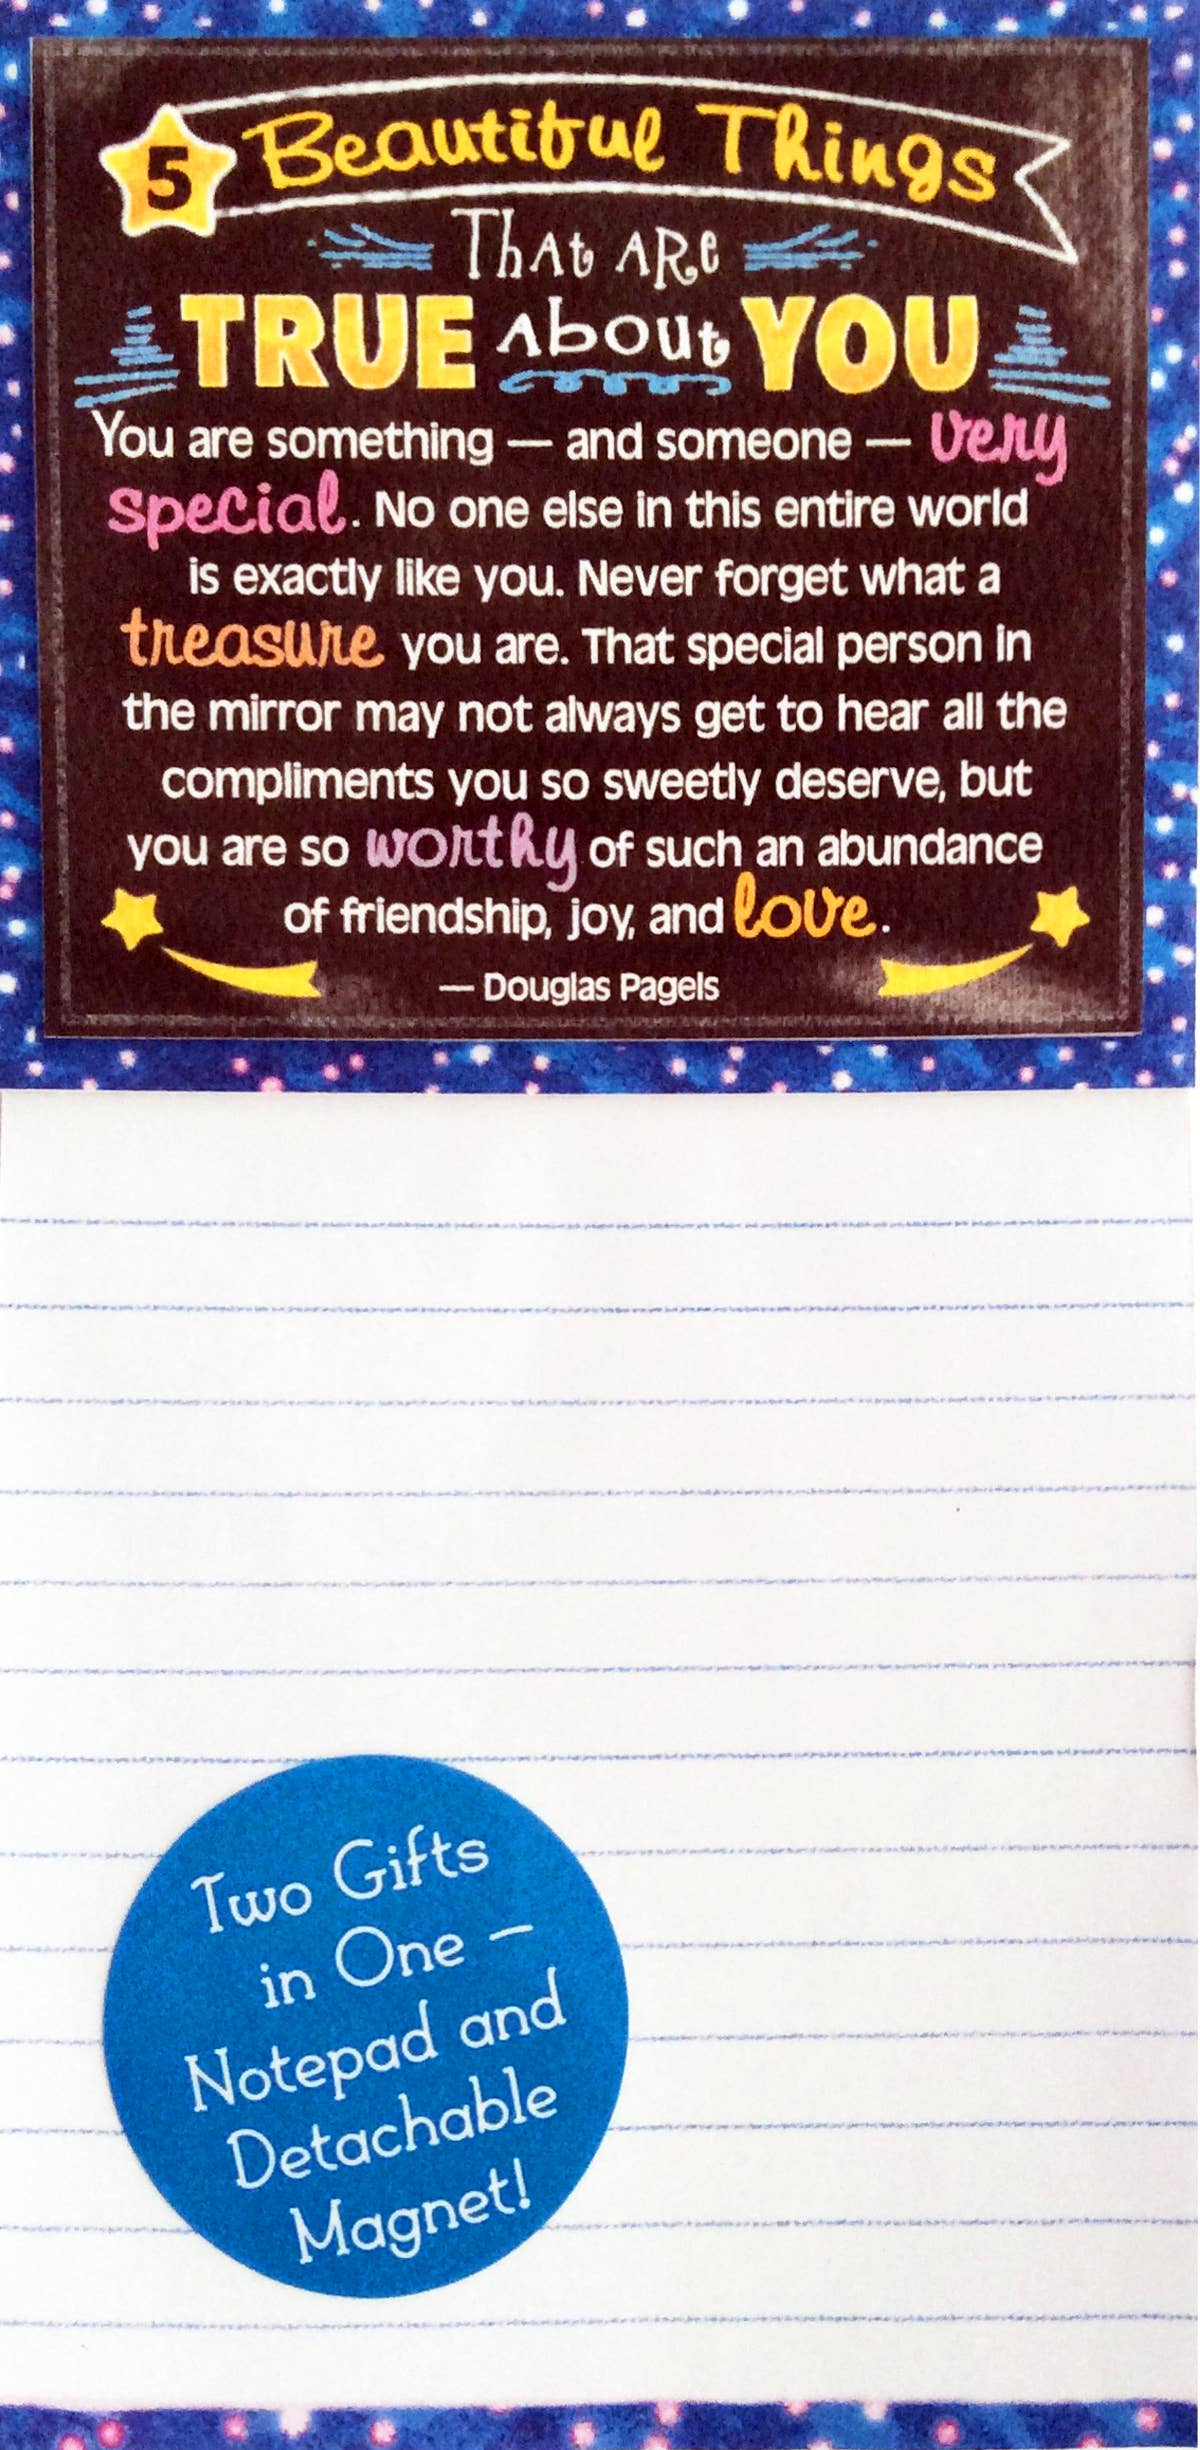 5 Beautiful Things
That are
TRUE About YOU
You are something — and someone — very
special. No one else in this entire world
is exactly like you. Never forget what a
treasure you are. That special person in
the mirror may not always get to hear all the
compliments you so sweetly deserve, but
you are so worthy of such an abundance
of friendship, joy, and love.
— Douglas Pagels
Two Gifts
in One —
Notepad and
Detachable
Magnet!